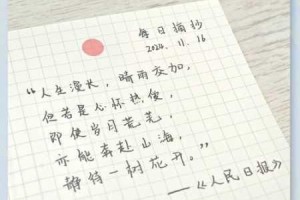 每日摘抄
2024.11.16
“人生漫长，晴雨交加，
但若是心怀热使，
即使岁月荒芜，
亦能奔赴山海，
静待一树花开。”
——《人民日报》